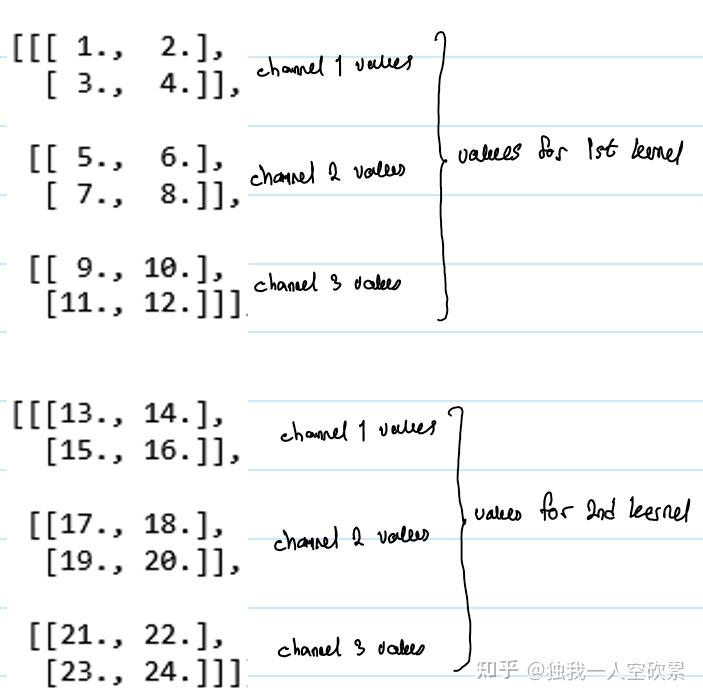 [[[ 1., 2.],
[ 3., 4.]],
channel 1 values
[[ 5., 6.],
[ 7., 8.]],
channel 2 values
[[ 9., 10.],
[11., 12.]]]
channel 3 values
values for 1st kernel
[[[13., 14.],
[15., 16.]],
channel 1 values
[[17., 18.],
[19., 20.]],
channel 2 values
[[21., 22.],
[23., 24.]]]
channel 3 values
values for 2nd kernel
知乎 @独我一人空砍累